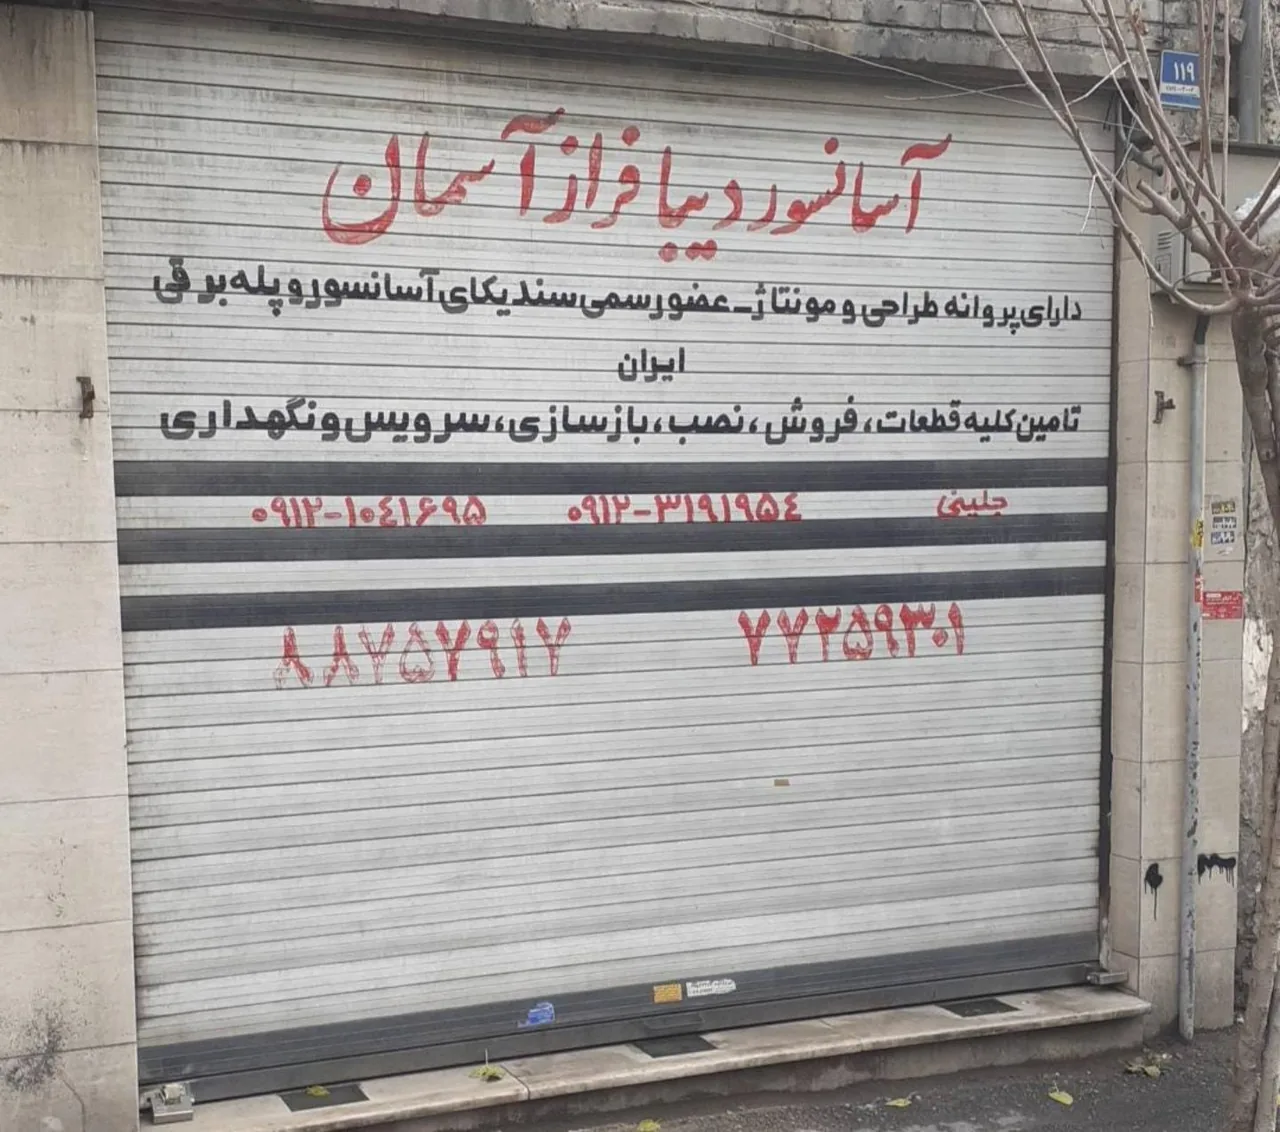 آسانسور دیبا فراز آسمان
دارای پروانه طراحی و مونتاژ - عضو رسمی سندیکای آسانسور و پله برقی
ایران
تامین کلیه قطعات، فروش، نصب، بازسازی، سرویس و نگهداری
جلینی ۰۹۱۲-۳۱۹۱۹۵۴ ۰۹۱۲-۱۰۴۱۶۹۵
۷۷۲۵۹۳۰۱ ۸۸۷۵۷۹۱۷
۱۱۹